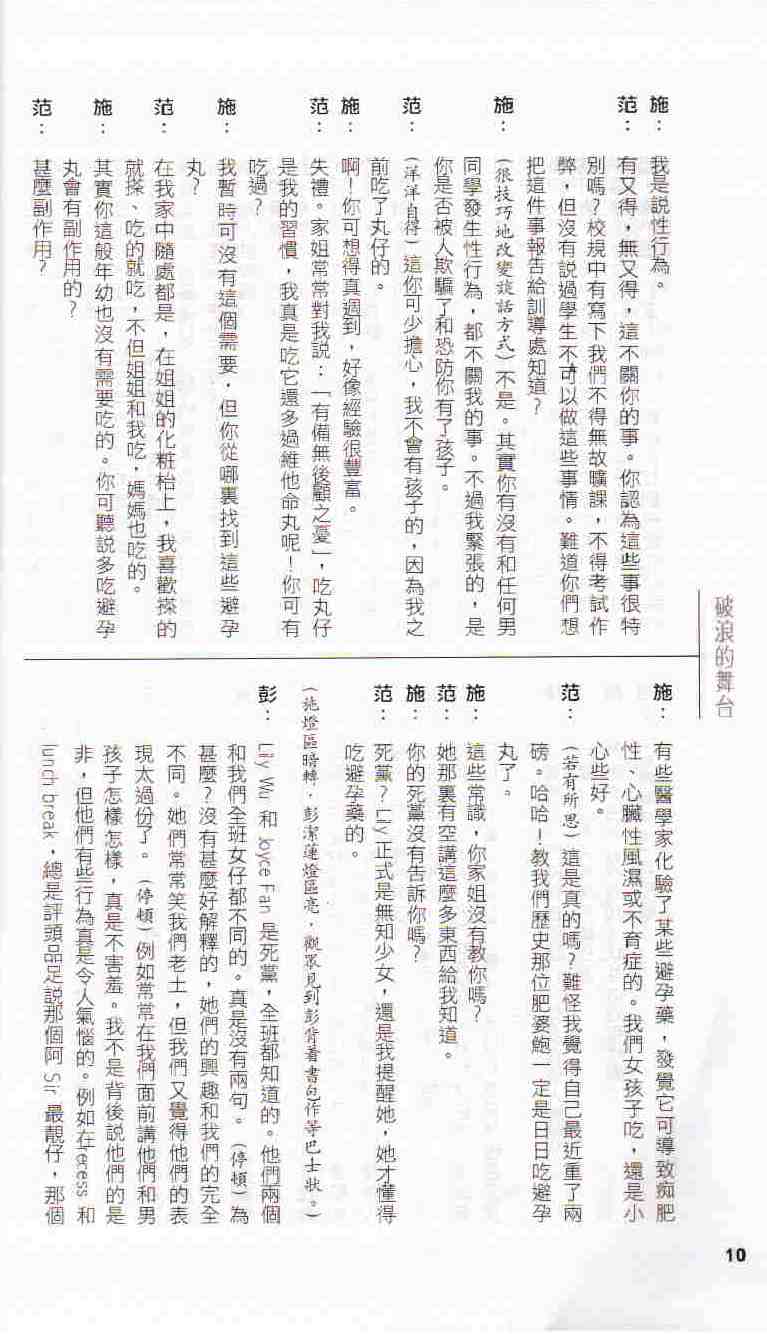 破浪的舞台
施：我是説性行為。
范：有又得，無又得，這不關你的事。你認為這些事很特
別嗎？校規中有寫下我們不得無故曠課，不得考試作
弊，但沒有説過學生不可以做這些事情。難道你們想
把這件事報告給訓導處知道？
施：（很技巧地改變談話方式）不是。其實你有沒有和任何男
同學發生性行為，都不關我的事。不過我緊張的，是
你是否被人欺騙了和恐防你有了孩子。
范：（洋洋自得）這你可少擔心，我不會有孩子的，因為我之
前吃了丸仔的。
施：啊！你可想得真週到，好像經驗很豐富。
范：失禮。家姐常常對我説：「有備無後顧之憂」，吃丸仔
是我的習慣，我真是吃它還多過維他命丸呢！你可有
吃過？
施：我暫時可沒有這個需要，但你從哪裏找到這些避孕
丸？
范：在我家中隨處都是，在姐姐的化粧枱上，我喜歡搽的
就搽、吃的就吃，不但姐姐和我吃，媽媽也吃的。
施：其實你這般年幼也沒有需要吃的。你可聽説多吃避孕
丸會有副作用的？
范：甚麼副作用？
施：有些醫學家化驗了某些避孕藥，發覺它可導致痴肥
性、心臟性風濕或不育症的。我們女孩子吃，還是小
心些好。
范：（若有所思）這是真的嗎？難怪我覺得自己最近重了兩
磅。哈哈！教我們歷史那位肥婆鮑一定是日日吃避孕
丸了。
施：這些常識，你家姐沒有教你嗎？
范：她那裏有空講這麼多東西給我知道。
施：你的死黨沒有告訴你嗎？
范：死黨？Lily正式是無知少女，還是我提醒她，她才懂得
吃避孕藥的。
（施燈區暗轉．彭潔蓮燈區亮，觀眾見到彭背着書包作等巴士狀。）
彭：Lily Wu 和 Joyce Fan 是死黨，全班都知道的。他們兩個
和我們全班女仔都不同的。真是沒有兩句。（停頓）為
甚麼？沒有甚麼好解釋的，她們的興趣和我們的完全
不同。她們常常笑我們老土，但我們又覺得他們的表
現太過份了。（停頓）例如常常在我們面前講他們和男
孩子怎樣怎樣，真是不害羞。我不是背後説他們的是
非，但他們有些行為真是令人氣惱的。例如在recess 和
lunch break，總是評頭品足説那個阿 Sir 最靚仔，那個
10